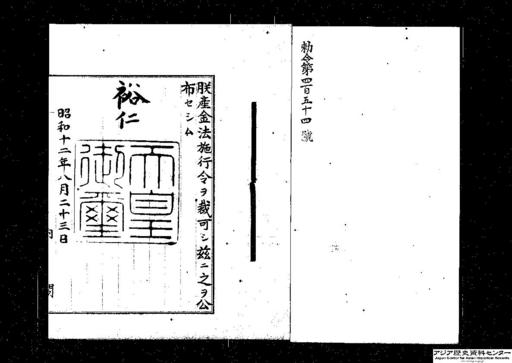 勅令第四百五十四號
朕産金法施行令ヲ裁可シ茲ニ之ヲ公
布セシム
裕仁
天皇
御璽
昭和十二年八月二十三日
内閣
アジア歴史資料センター
Japan Center for Asian Historical Records